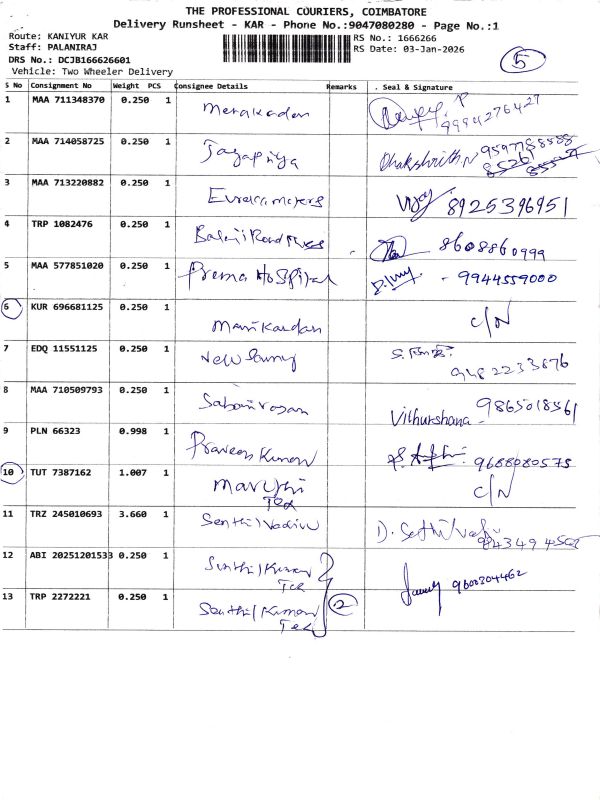 THE PROFESSIONAL COURIERS, COIMBATORE
Delivery Runsheet - KAR - Phone No.:9047080280 - Page No.:1
Route: KANIYUR KAR
Staff: PALANIRAJ
DRS No.: DCJB166626601
Vehicle: Two Wheeler Delivery
RS No.: 1666266
RS Date: 03-Jan-2026
5
S No Consignment No Weight PCS Consignee Details Remarks . Seal & Signature
1 MAA 711348370 0.250 1 Manikandan 9994276427
2 MAA 714058725 0.250 1 Jayapriya Dhakshrith N
3 MAA 713220882 0.250 1 Eureka 8925396951
4 TRP 1082476 0.250 1 Balaji 8608860999
5 MAA 577851020 0.250 1 Prema Hospital 9944559000
6 KUR 696681125 0.250 1 Manikandan C/N
7 EDQ 11551125 0.250 1 New Sunny 9482233876
8 MAA 710509793 0.250 1 Vithurshana 9865018561
9 PLN 66323 0.998 1 Praveen Kumar 9688080575
10 TUT 7387162 1.007 1 Maruthi Tex C/N
11 TRZ 245010693 3.660 1 Senthil Vadivu D.
12 ABI 20251201533 0.250 1 Senthil Kumar Tex 9600304462
13 TRP 2272221 0.250 1 Senthil Kumar Tex 2